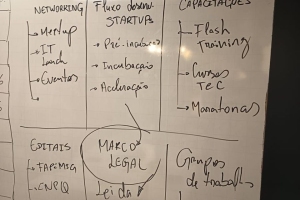 NETWORKING
→ Meetup
→ IT
Lunch
→ Eventos
Fluxo desenv.
STARTUPS
→ Pré-incubação
→ Incubação
→ Aceleração
CAPACITAÇÕES
→ Flash
Training
→ Cursos
TEC
→ Maratonas
EDITAIS
→ FAPEMIG
→ CNPQ
MARCO
LEGAL
Lei da
Grupos
de trabalh